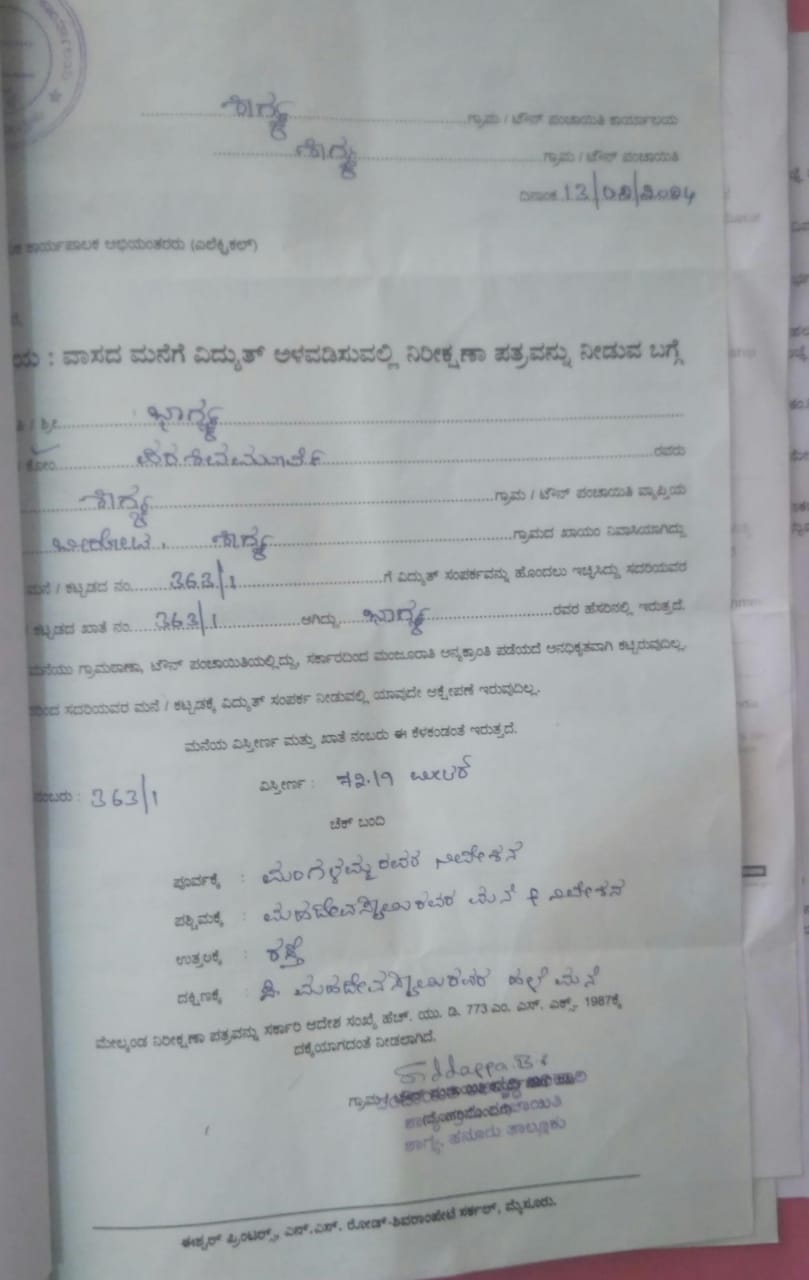 ಶಾಗ್ಯ ಗ್ರಾಮ / ಟೌನ್ ಪಂಚಾಯಿತಿ ಕಾರ್ಯಾಲಯ
ಶಾಗ್ಯ ಗ್ರಾಮ / ಟೌನ್ ಪಂಚಾಯಿತಿ
ದಿನಾಂಕ 13/02/2024
ಕಾರ್ಯಪಾಲಕ ಅಭಿಯಂತರರು (ಎಲೆಕ್ಟ್ರಿಕಲ್)
ಯ : ವಾಸದ ಮನೆಗೆ ವಿದ್ಯುತ್ ಅಳವಡಿಸುವಲ್ಲಿ ನಿರೀಕ್ಷಣಾ ಪತ್ರವನ್ನು ನೀಡುವ ಬಗ್ಗೆ
/ ಶ್ರೀ ಭಾಗ್ಯ
ಕೋಂ ಪರಶಿವಮೂರ್ತಿ ರವರು
ಶಾಗ್ಯ ಗ್ರಾಮ / ಟೌನ್ ಪಂಚಾಯಿತಿ ವ್ಯಾಪ್ತಿಯ
ಶಾಗ್ಯ ಗ್ರಾಮದ ಖಾಯಂ ನಿವಾಸಿಯಾಗಿದ್ದು
ಮನೆ / ಕಟ್ಟಡದ ನಂ. 363/1 ಗೆ ವಿದ್ಯುತ್ ಸಂಪರ್ಕವನ್ನು ಹೊಂದಲು ಇಚ್ಛಿಸಿದ್ದು ಸದರಿಯವರ
ಕಟ್ಟಡದ ಖಾತೆ ನಂ. 363/1 ಆಗಿದ್ದು ಭಾಗ್ಯ ರವರ ಹೆಸರಿನಲ್ಲಿ ಇರುತ್ತದೆ.
ಮನೆಯು ಗ್ರಾಮಠಾಣಾ, ಟೌನ್ ಪಂಚಾಯಿತಿಯಲ್ಲಿದ್ದು, ಸರ್ಕಾರದಿಂದ ಮಂಜೂರಾತಿ ಅನ್ಯಕ್ರಾಂತಿ ಪಡೆಯದೆ ಅನಧಿಕೃತವಾಗಿ ಕಟ್ಟಿರುವುದಿಲ್ಲ.
ಸದರಿಯವರ ಮನೆ / ಕಟ್ಟಡಕ್ಕೆ ವಿದ್ಯುತ್ ಸಂಪರ್ಕ ನೀಡುವಲ್ಲಿ ಯಾವುದೇ ಆಕ್ಷೇಪಣೆ ಇರುವುದಿಲ್ಲ.
ಮನೆಯ ವಿಸ್ತೀರ್ಣ ಮತ್ತು ಖಾತೆ ನಂಬರು ಈ ಕೆಳಕಂಡಂತೆ ಇರುತ್ತದೆ.
ನಂಬರು : 363/1 ವಿಸ್ತೀರ್ಣ : 72.19 ಮೀಟರ್
ಚೆಕ್ ಬಂದಿ
ಪೂರ್ವಕ್ಕೆ : ಮಂಗಳಮ್ಮರವರ ನಿವೇಶನ
ಪಶ್ಚಿಮಕ್ಕೆ : ಮಹದೇವಸ್ವಾಮಿರವರ ಮನೆ & ನಿವೇಶನ
ಉತ್ತರಕ್ಕೆ : ರಸ್ತೆ
ದಕ್ಷಿಣಕ್ಕೆ : ಮಹದೇವಸ್ವಾಮಿರವರ ಹಳೆ ಮನೆ
ಮೇಲ್ಕಂಡ ನಿರೀಕ್ಷಣಾ ಪತ್ರವನ್ನು ಸರ್ಕಾರಿ ಆದೇಶ ಸಂಖ್ಯೆ ಹೆಚ್. ಯು. ಡಿ. 773 ಎಂ. ಎಸ್. ಎಕ್ಸ್. 1987ಕ್ಕೆ
ದಕ್ಕೆಯಾಗದಂತೆ ನೀಡಲಾಗಿದೆ.
Siddappa.B
ಗ್ರಾಮ
ಶಾಗ್ಯ, ಹನೂರು ತಾಲ್ಲೂಕು
ಈಶ್ವರ್ ಪ್ರಿಂಟರ್ಸ್, ಎನ್.ಎಸ್. ರೋಡ್-ಶಿವರಾಂಪೇಟೆ ಸರ್ಕಲ್, ಮೈಸೂರು.